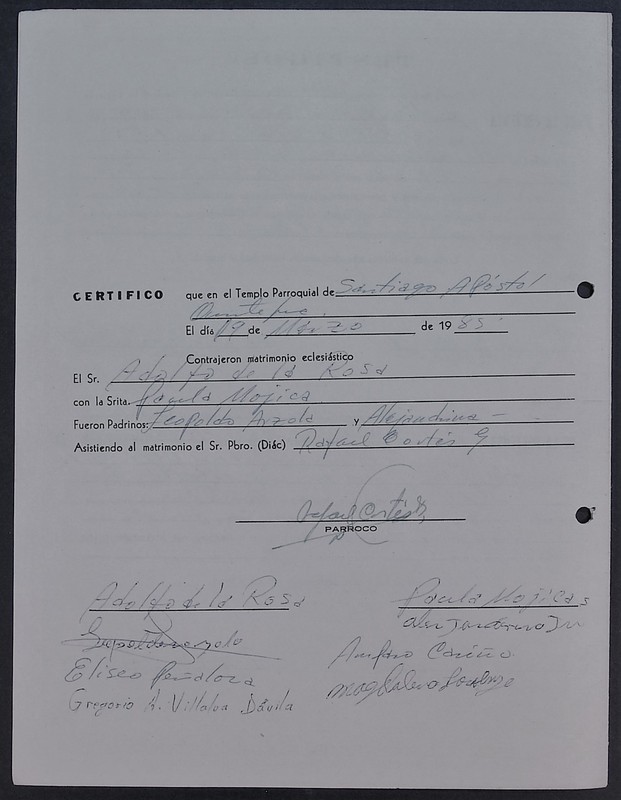 CERTIFICO que en el Templo Parroquial de Santiago Apóstol
El día 19 de Marzo de 19 85
Contrajeron matrimonio eclesiástico
El Sr. Adolfo de la Rosa
con la Srita. Paula Mojica
Fueron Padrinos: Leopoldo Arzola y Alejandrina
Asistiendo al matrimonio el Sr. Pbro. (Diác) Rafael Cortés G
Rafael Cortés G.
PARROCO
Adolfo de la Rosa Paula Mojicas
Eliseo Peñaloza Amparo Cariño
Gregorio A. Villalva Dávila Magdalena